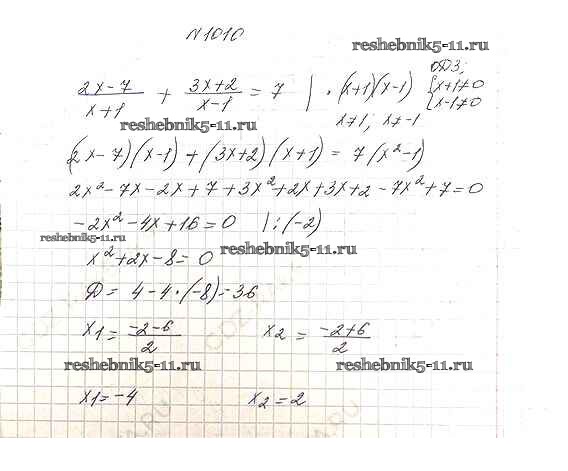 N1010
reshebnik5-11.ru
ОДЗ:
(2x-7)/(x+1) + (3x+2)/(x-1) = 7 | · (x+1)(x-1) {x+1≠0
{x-1≠0
reshebnik5-11.ru
x≠1; x≠-1
(2x-7)(x-1)+(3x+2)(x+1)=7(x²-1)
2x²-7x-2x+7+3x²+2x+3x+2-7x²+7=0
-2x²-4x+16=0 |:(-2)
reshebnik5-11.ru
reshebnik5-11.ru
x²+2x-8=0
D= 4-4·(-8)=36
x1= (-2-6)/2 x2= (-2+6)/2
reshebnik5-11.ru reshebnik5-11.ru
x1=-4 x2=2